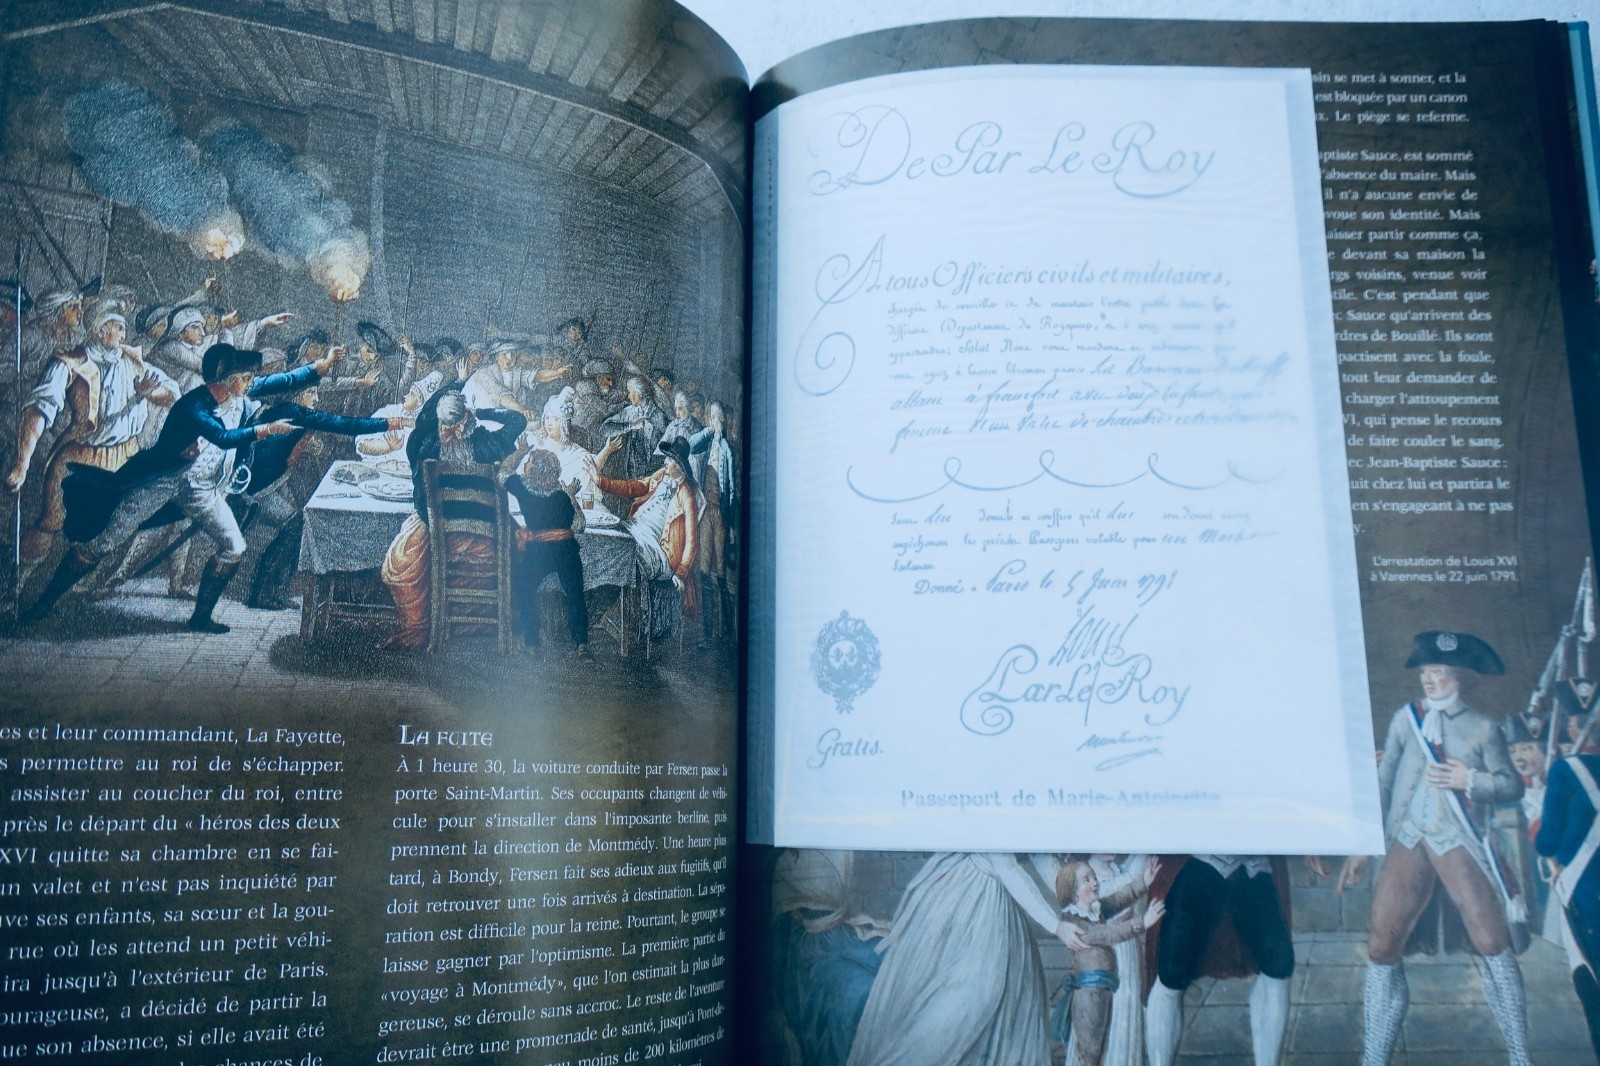 es et leur commandant, La Fayette,
s permettre au roi de s'échapper.
assister au coucher du roi, entre
près le départ du « héros des deux
XVI quitte sa chambre en se fai-
un valet et n'est pas inquiété par
uve ses enfants, sa sœur et la gou-
rue où les attend un petit véhi-
ira jusqu'à l'extérieur de Paris.
ourageuse, a décidé de partir la
ue son absence, si elle avait été
chances de
LA FUITE
À 1 heure 30, la voiture conduite par Fersen passe la
porte Saint-Martin. Ses occupants changent de véhi-
cule pour s'installer dans l'imposante berline, puis
prennent la direction de Montmédy. Une heure plus
tard, à Bondy, Fersen fait ses adieux aux fugitifs, qu'il
doit retrouver une fois arrivés à destination. La sépa-
ration est difficile pour la reine. Pourtant, le groupe se
laisse gagner par l'optimisme. La première partie du
« voyage à Montmédy », que l'on estimait la plus dan-
gereuse, se déroule sans accroc. Le reste de l'aventure
devrait être une promenade de santé, jusqu'à Pont-de-
moins de 200 kilomètres de
De Par Le Roy
A tous Officiers civils et militaires,
chargés de surveiller et de maintenir l'ordre public dans les
différens Départemens du Royaume, et à tous
appartiendra; Salut Nous vous mandons et
vous ayez à laisser librement passer
allant à francfort avec
femme un Valet de chambre
Sans
le présent Passeport valable pour un Mois
seulement
Donné à Paris le 5 Juin 1791
Louis
Par Le Roy
Gratis.
Passeport de Marie-Antoinette
sin se met à sonner, et la
est bloquée par un canon
x. Le piège se referme.
ptiste Sauce, est sommé
l'absence du maire. Mais
il n'a aucune envie de
voue son identité. Mais
aisser partir comme ça,
e devant sa maison la
rgs voisins, venue voir
tile. C'est pendant que
c Sauce qu'arrivent des
rdres de Bouillé. Ils sont
pactisent avec la foule,
tout leur demander de
charger l'attroupement
VI, qui pense le recours
de faire couler le sang.
ec Jean-Baptiste Sauce :
uit chez lui et partira le
en s'engageant à ne pas
y.
L'arrestation de Louis XVI
à Varennes le 22 juin 1791.